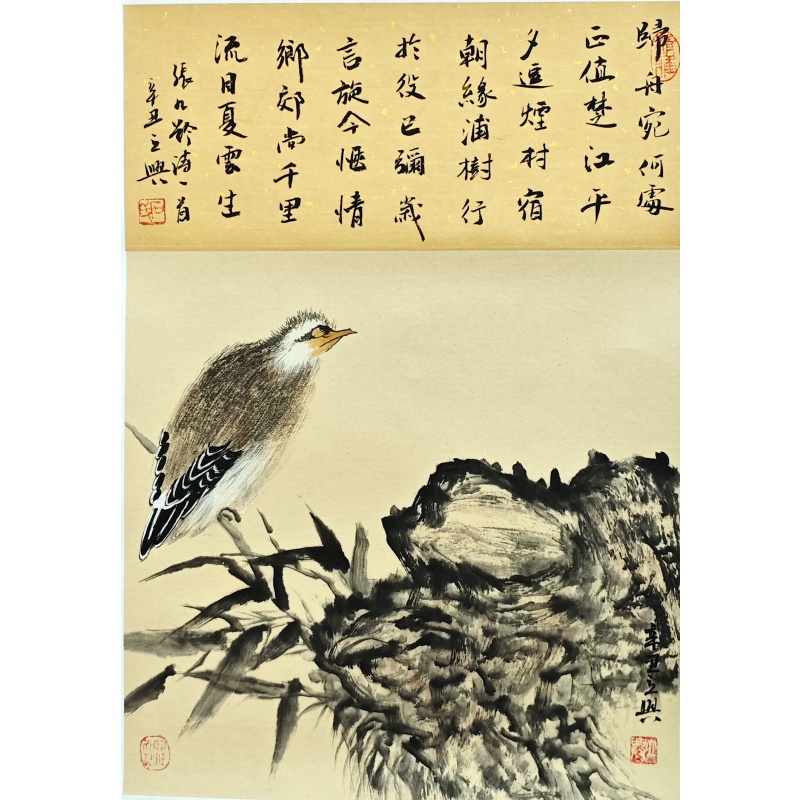 歸舟宛何處
正值楚江平
夕逗煙村宿
朝緣浦樹行
於役已彌歲
言旋今愜情
鄉郊尚千里
流目夏雲生
張九齡詩一首
辛丑立興
辛丑立興